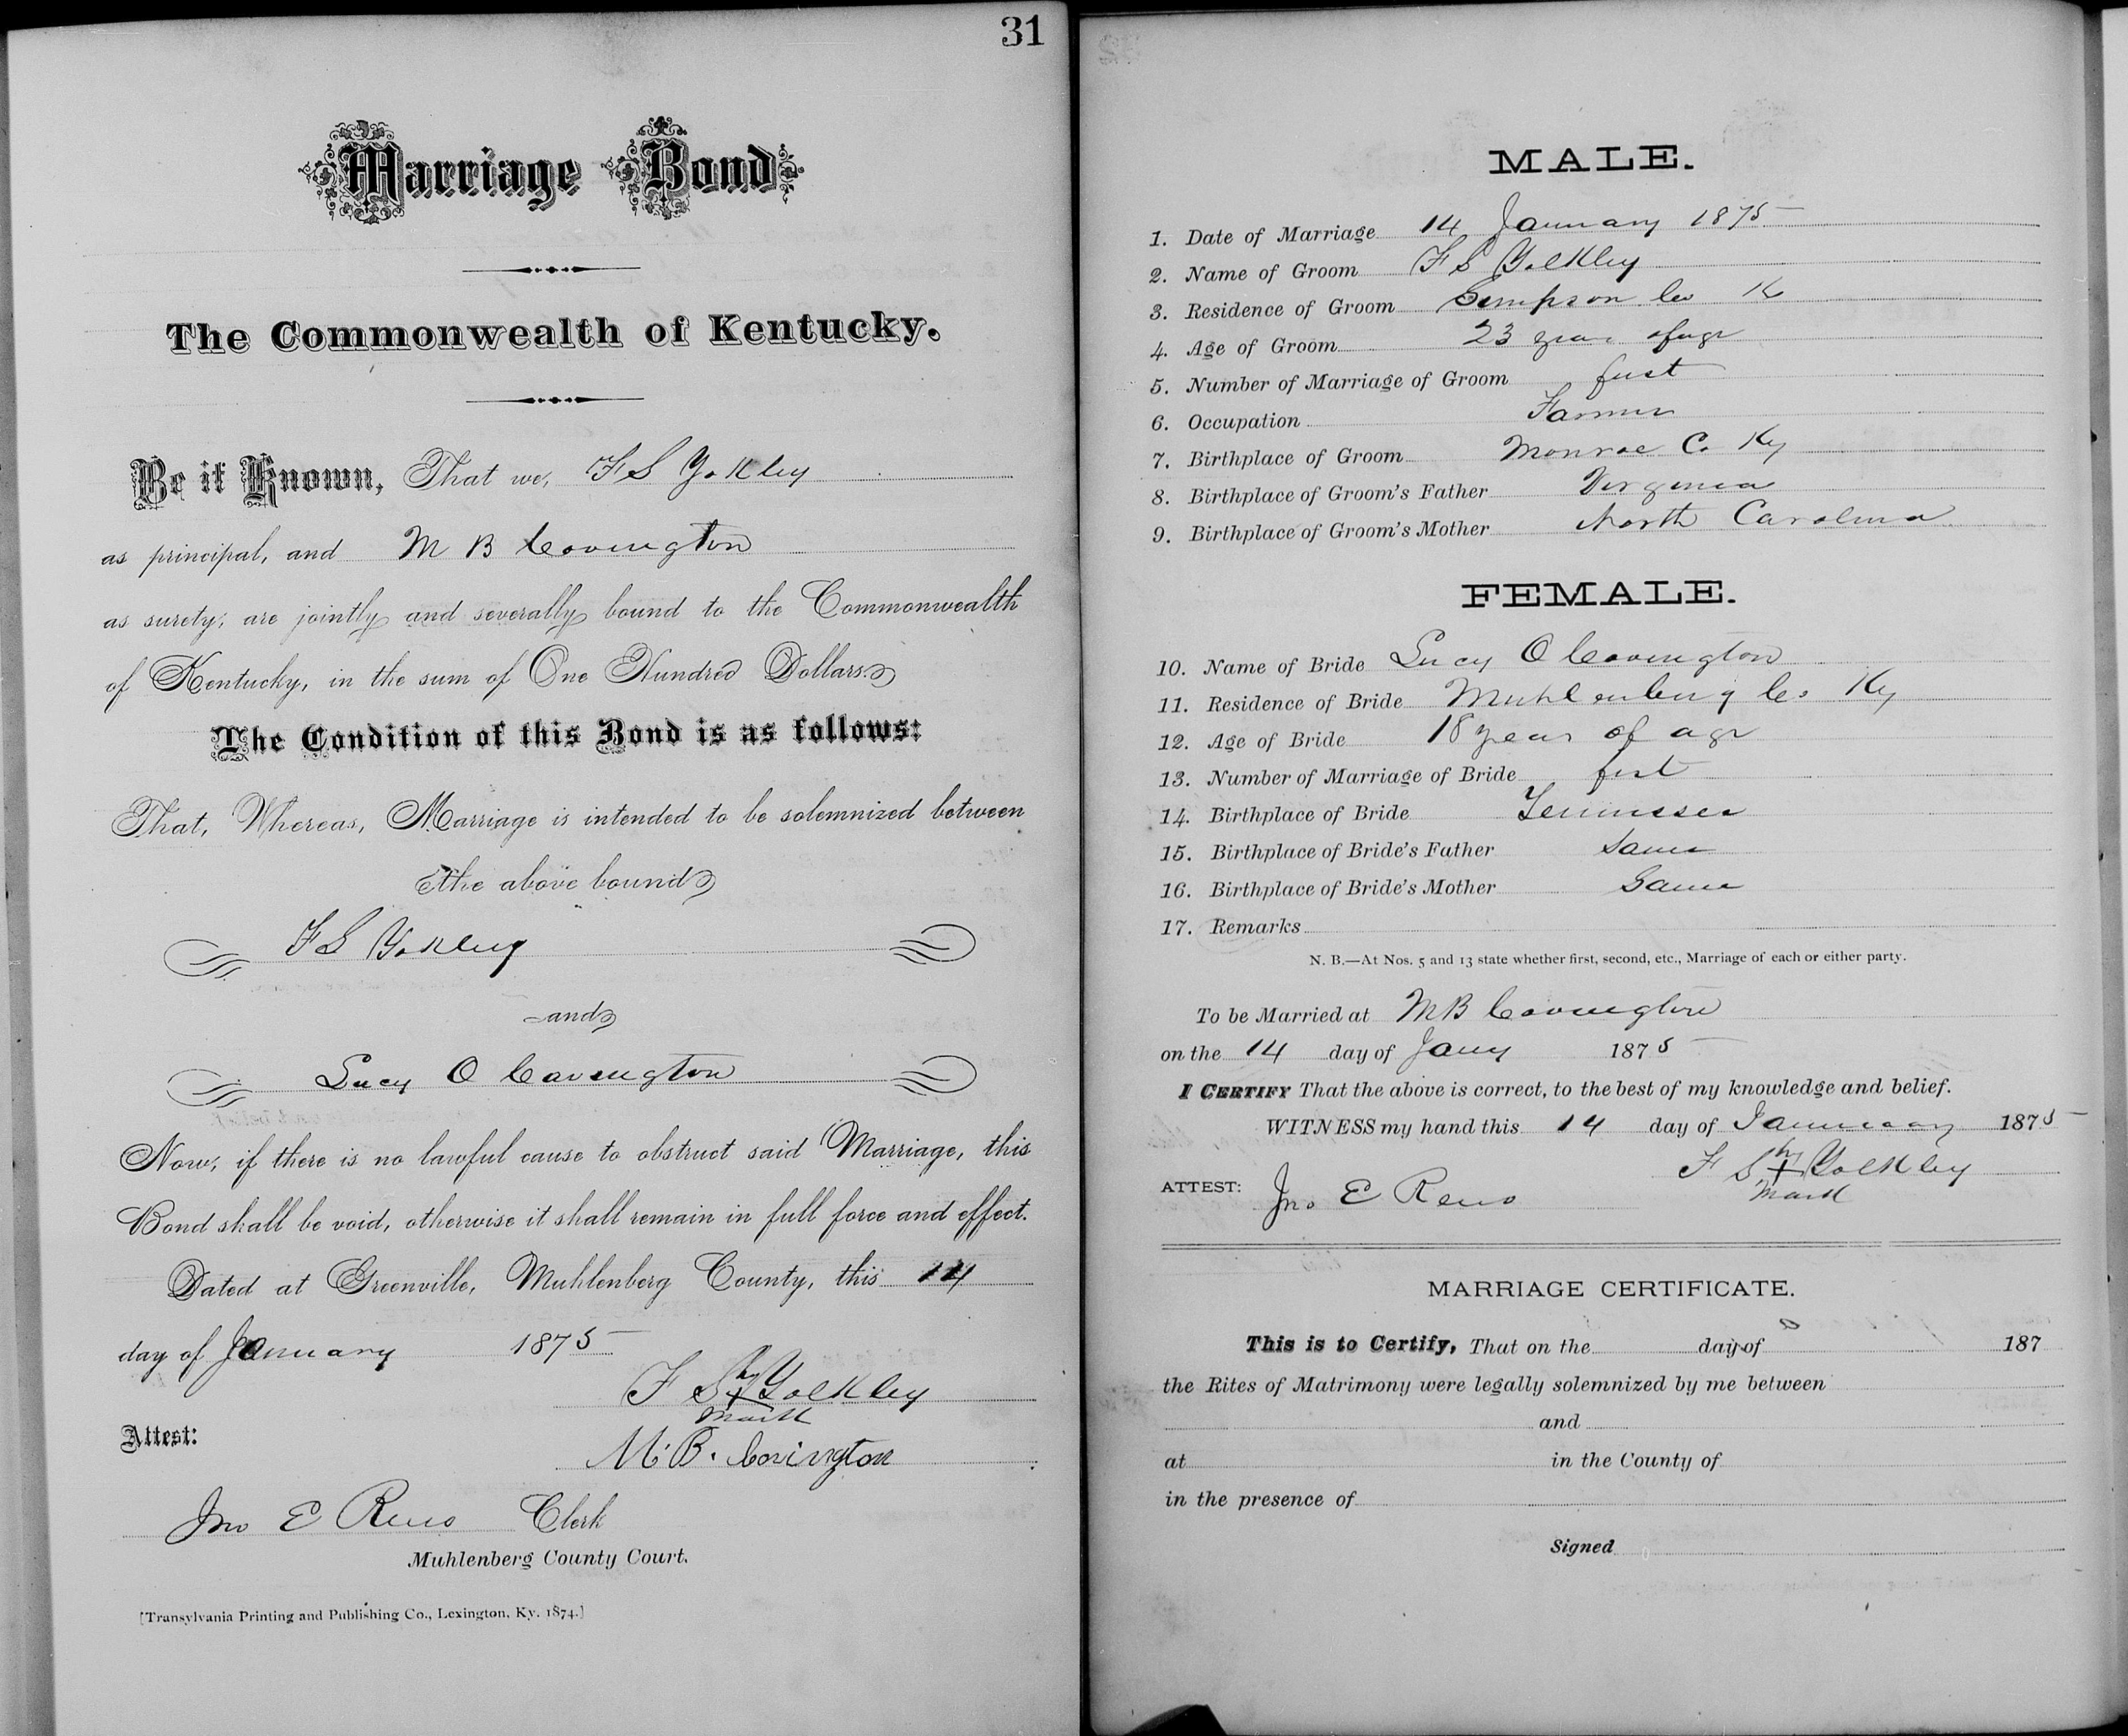 31
Marriage Bond
The Commonwealth of Kentucky.
Be it Known, That we, F S Yokley
as principal, and M B Covington
as surety, are jointly and severally bound to the Commonwealth
of Kentucky, in the sum of One Hundred Dollars.
The Condition of this Bond is as follows:
That, Whereas, Marriage is intended to be solemnized between
the above bound
F S Yokley
and
Lucy O Covington
Now, if there is no lawful cause to obstruct said Marriage, this
Bond shall be void, otherwise it shall remain in full force and effect.
Dated at Greenville, Muhlenberg County, this 14
day of January 1875
F S his + Yolkley
mark
Attest:
M. B. Covington
Jno E Reno Clerk
Muhlenberg County Court.
[Transylvania Printing and Publishing Co., Lexington, Ky. 1874.]
MALE.
1. Date of Marriage 14 January 1875
2. Name of Groom F S Yolkley
3. Residence of Groom Simpson Co K
4. Age of Groom 23 years of age
5. Number of Marriage of Groom first
6. Occupation Farmer
7. Birthplace of Groom Monroe Co Ky
8. Birthplace of Groom's Father Virginia
9. Birthplace of Groom's Mother North Carolina
FEMALE.
10. Name of Bride Lucy O Covington
11. Residence of Bride Muhlenburg Co Ky
12. Age of Bride 18 years of age
13. Number of Marriage of Bride first
14. Birthplace of Bride Tennessee
15. Birthplace of Bride's Father Same
16. Birthplace of Bride's Mother Same
17. Remarks
N. B.—At Nos. 5 and 13 state whether first, second, etc., Marriage of each or either party.
To be Married at M B Covington
on the 14 day of Jany 1875
I CERTIFY That the above is correct, to the best of my knowledge and belief.
WITNESS my hand this 14 day of January 1875
F S his + Yolkley
mark
ATTEST: Jno E Reno
MARRIAGE CERTIFICATE.
This is to Certify, That on the day of 187
the Rites of Matrimony were legally solemnized by me between
and
at in the County of
in the presence of
Signed